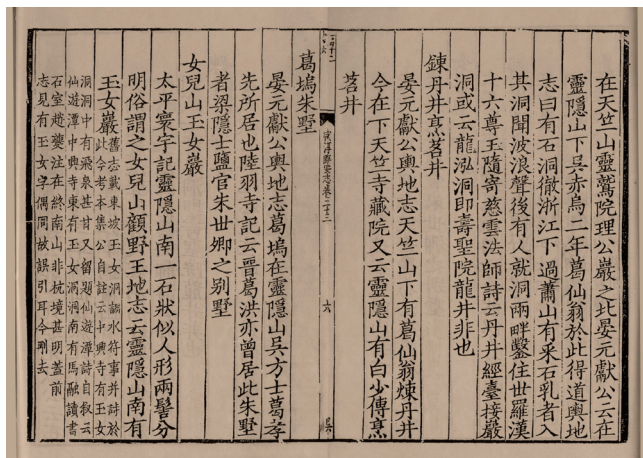 在天竺山靈鷲院理公巖之北晏元獻公云在
靈隱山下吳赤烏二年葛仙翁於此得道輿地
志曰有石洞徹浙江下過蕭山有采石乳者入
其洞聞波浪聲後有人就洞兩畔鑿住世羅漢
十六尊王隨嵜慈雲法師詩云丹井經臺接巖
洞或云龍泓洞即壽聖院龍井非也
鍊丹井烹茗井
晏元獻公輿地志天竺山下有葛仙翁煉丹井
今在下天竺寺藏院又云靈隱山有白少傅烹
茗井
咸淳臨安志卷二十三
六
葛塢朱墅
晏元獻公輿地志葛塢在靈隱山吳方士葛孝
先所居也陸羽寺記云晉葛洪亦曾居此朱墅
者梁隱士鹽官朱世卿之别墅
女兒山玉女巖
太平寰宇記靈隱山南一石狀似人形兩髻分
明俗謂之女兒山顧野王地志云靈隱山南有
玉女巖
舊志載東坡玉女洞調水符事并詩於
此今考本集公自註云中興寺有玉女
洞洞中有飛泉甚甘又留題仙遊潭詩自叙云
仙遊潭中興寺東有玉女洞洞南有馬融讀書
石室趙夔注在終南山非杭境甚明蓋前
志見有玉女字偶同故誤引耳今刪去